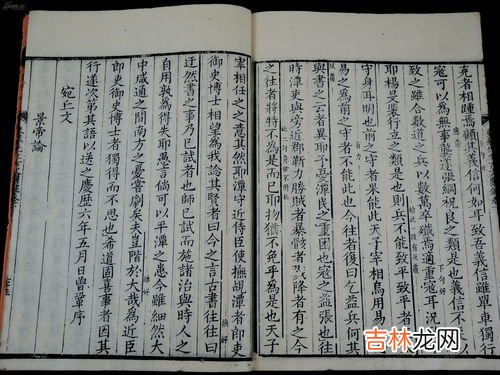 克者相踵焉顧其義信何如耳致吾義信雖單車獨行
寇可以為無事龔遂張綱祝良之類是也義信不
致之雖合數道之兵以數萬卒殲焉適重寇耳況
耶楊旻裴行立之類是也則兵不能致平致平者
守身耳明也前之守者果能此天子宰相烏用易
易之為前之守者不能此也今往者復曰乞益兵何其
與書之云者異耶予憂潭民之重困也寇之益張也往
時潭吏與旁近郡靳力勝賊者暴骸者戮降者有之今
之往者將特不為是而已耶抑猶不免乎為是也天子
宰相任之之意其然耶潭守近侍臣使撫覘潭者郎吏
御史博士相望為我諗其賢者曰今之言古書往往曰
迂然書之事乃已試者也師已試而施諸治與時人之
自用孰為得失耶愚言倘可以平潭之患今雖細然大
中咸通之間南方之憂嘗劇矣夫豈階於大哉為近臣
郎吏御史博士者獨得而不思也希道固喜事者因其
行遂次第其語以送之慶歷六年五月日曾鞏序
宛丘文
景帝論
吉林龙网